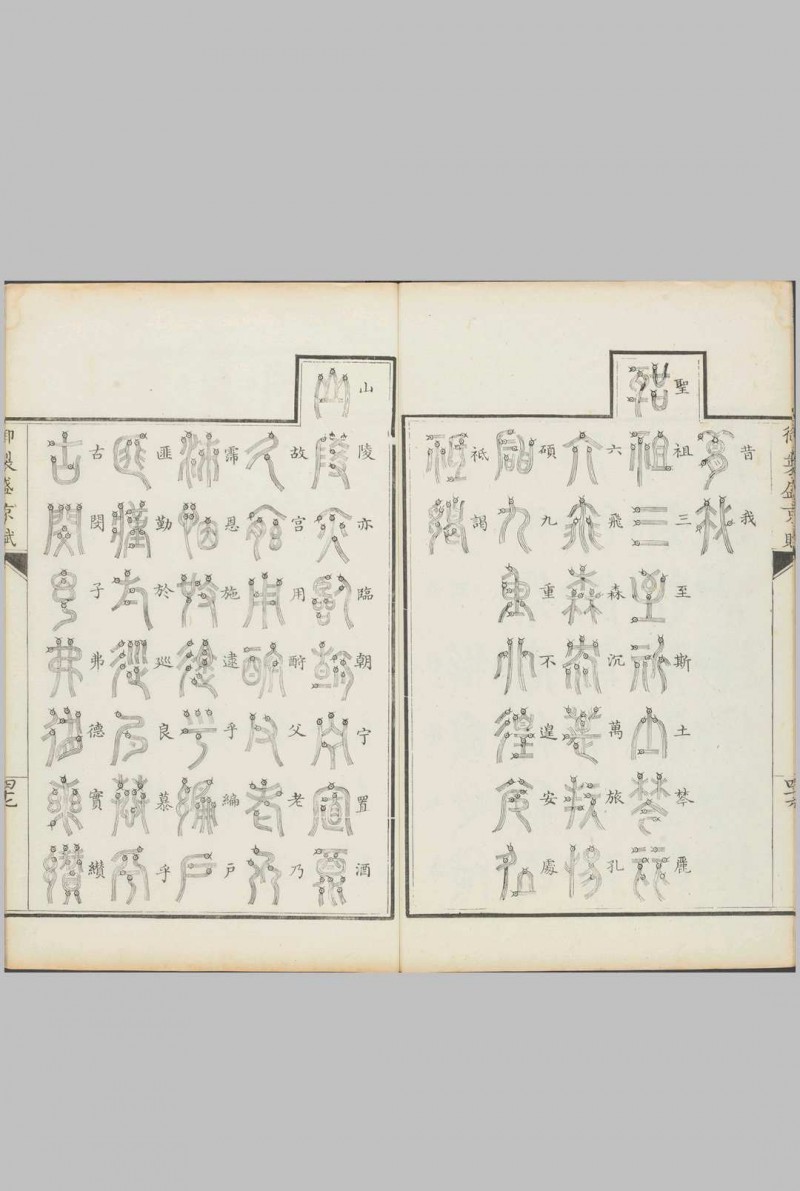 御製盛京賦
四六
昔我
聖祖三至斯土棽麗
六飛森沉萬旅孔
碩九重不遑安處
祗謁
山陵亦臨朝宁置酒
故宮用酧父老乃
霈恩施逮乎編戶
匪勤於巡良慕乎
古閔子弗德實纘
御製盛京賦
四七